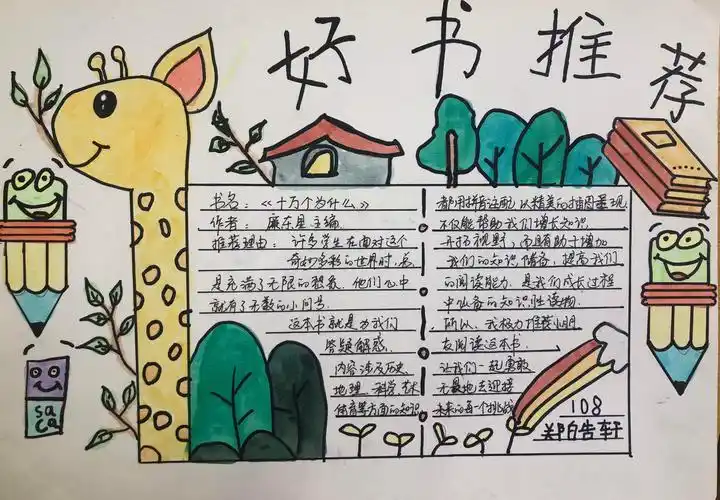 好书推荐
书名：《十万个为什么》
作者：廉东星主编
推荐理由：许多学生在面对这个
奇妙多彩的世界时，总
是充满了无限的想象，他们心中
就有了无数的小问号
这本书就是为我们
答疑解惑，
内容涉及历史
地理、科学、艺术
体育等方面的知识
都用拼音注配以精美的插图呈现，
不仅能帮助我们增长知识，
开拓视野，而且有助于增加
我们的知识储备，提高我们
的阅读能力，是我们成长过程
中必备的知识性读物。
所以，我极力推荐小朋
友阅读这本书，
让我们一起勇敢
无畏地去迎接
未来的每一个挑战
108
saca